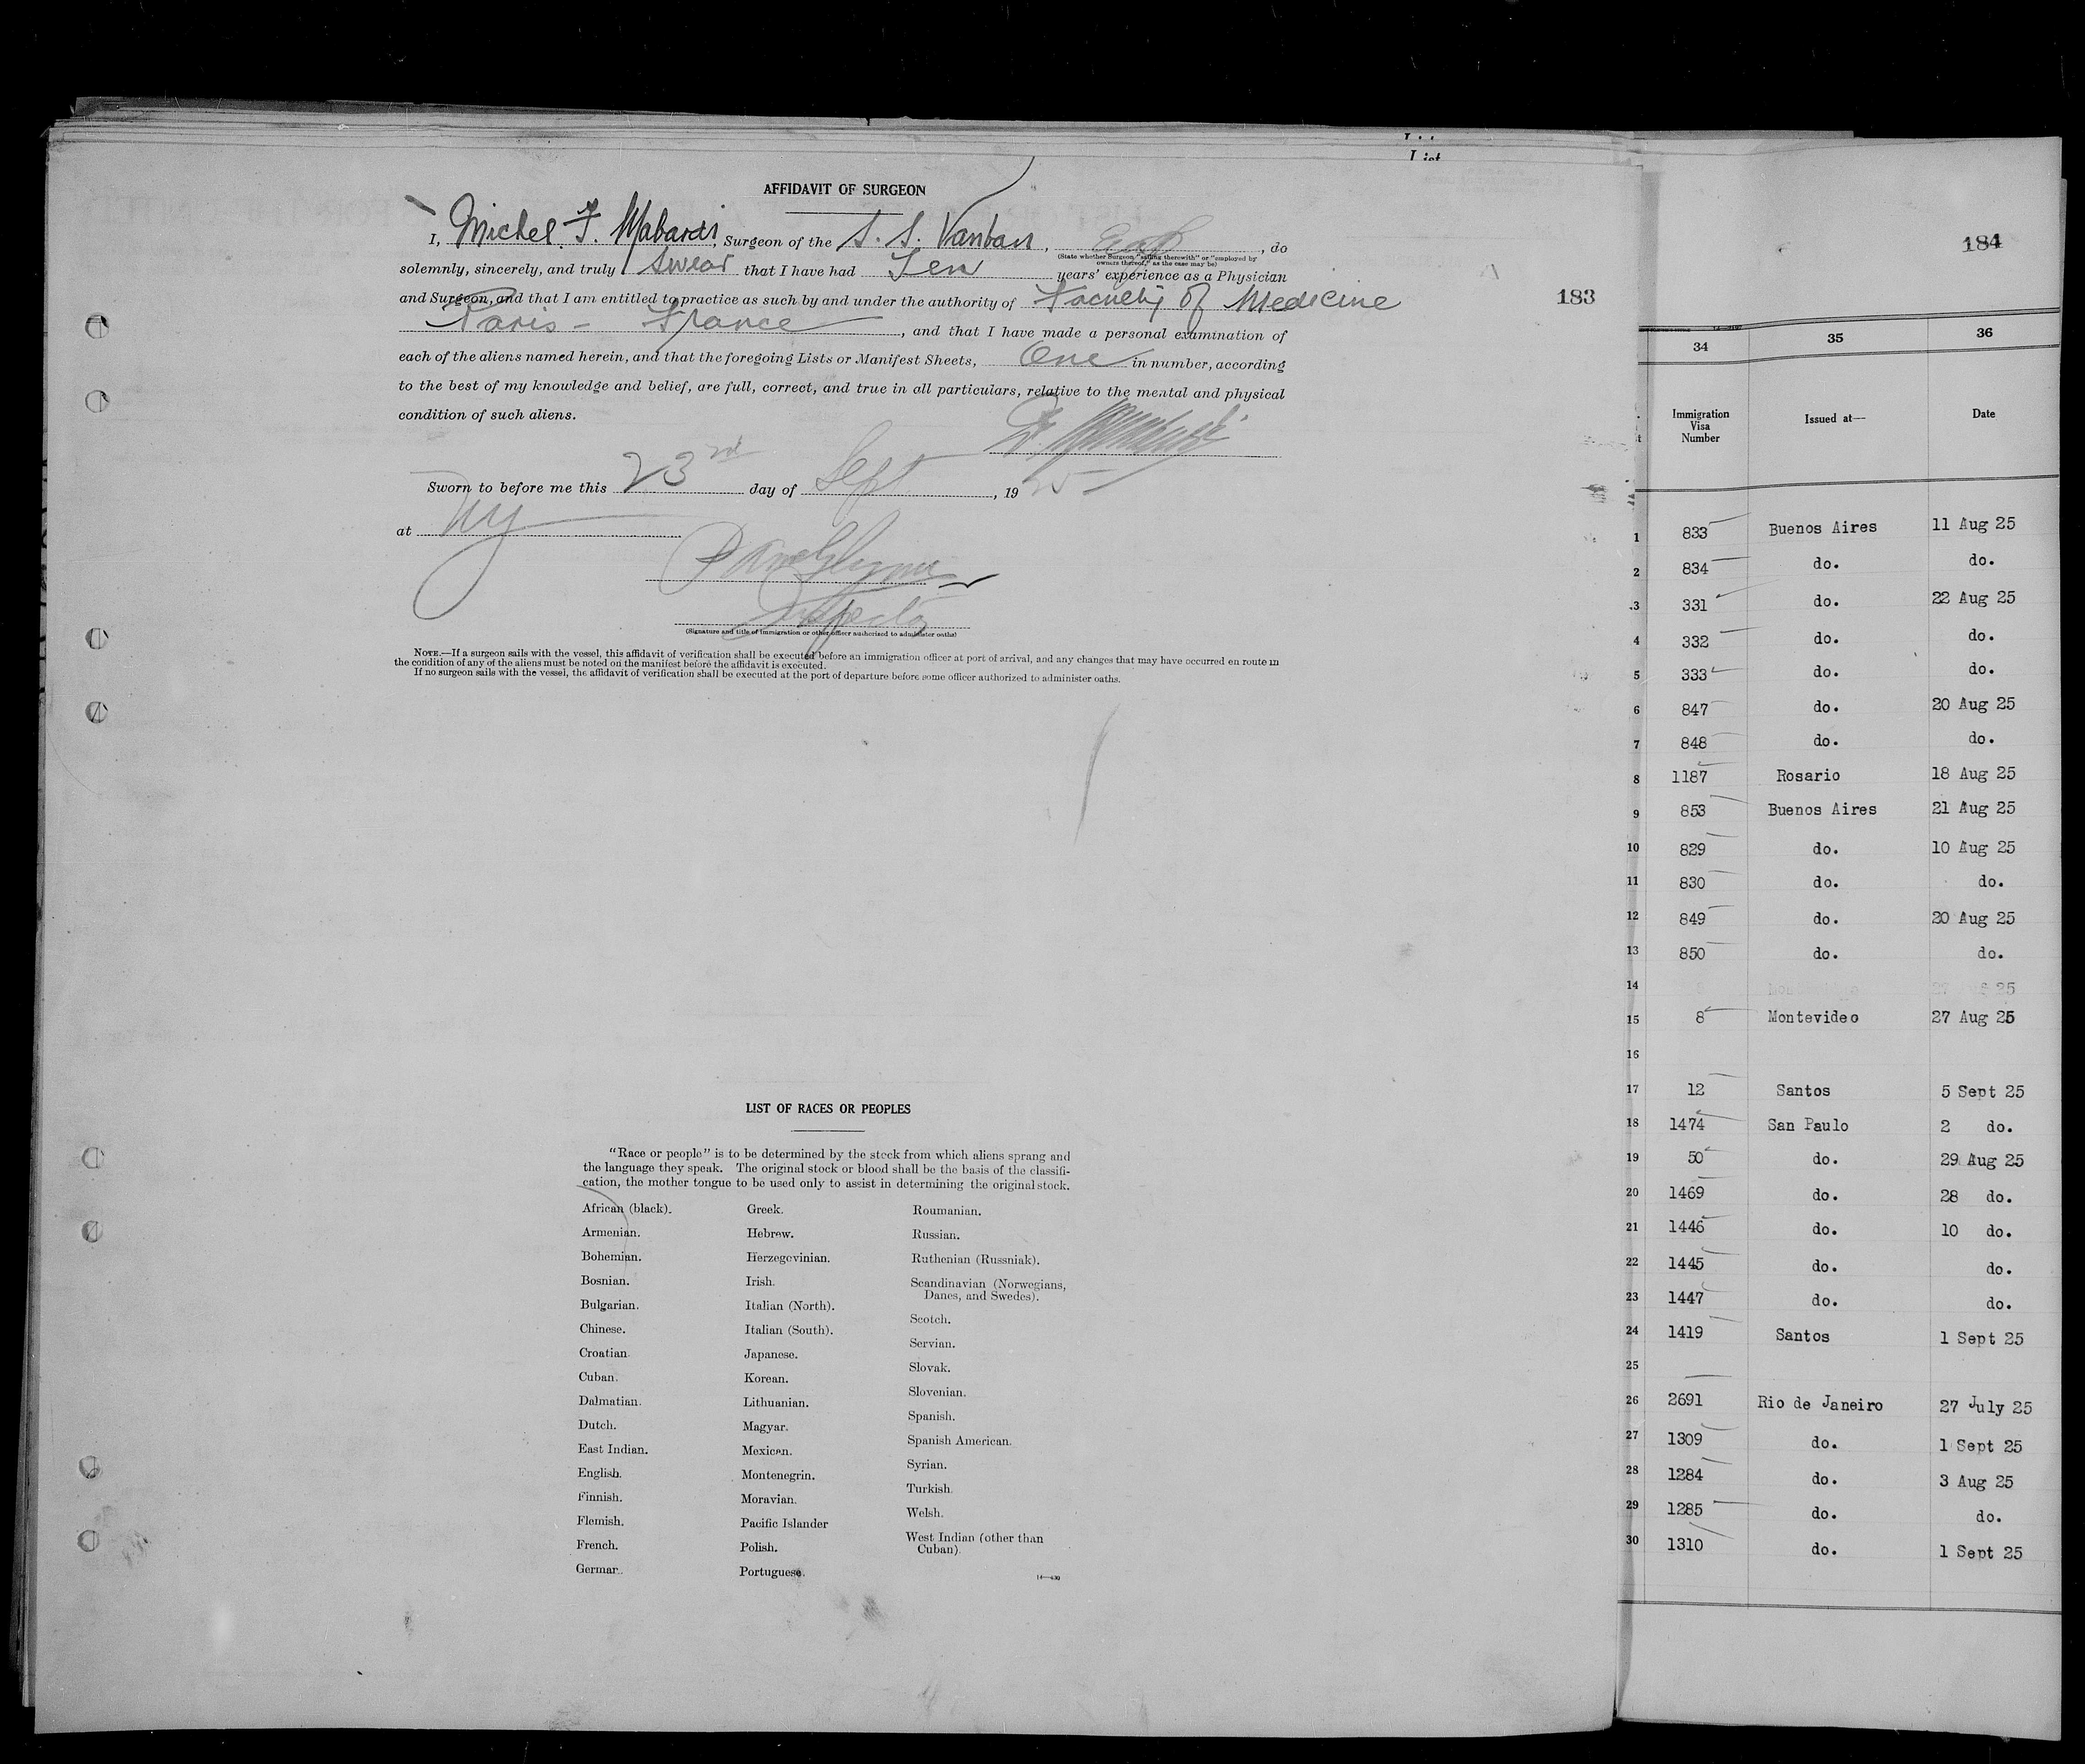 AFFIDAVIT OF SURGEON
I, Michel. F. Mabardi, Surgeon of the S. S. Vauban, , do
(State whether Surgeon "sailing therewith" or "employed by
owners thereof," as the case may be)
solemnly, sincerely, and truly swear that I have had Ten years' experience as a Physician
and Surgeon, and that I am entitled to practice as such by and under the authority of Faculty of Medicine
Paris - France , and that I have made a personal examination of
each of the aliens named herein, and that the foregoing Lists or Manifest Sheets, One in number, according
to the best of my knowledge and belief, are full, correct, and true in all particulars, relative to the mental and physical
condition of such aliens.
Sworn to before me this 23rd day of Sept , 1925
at NY
Inspector
(Signature and title of immigration or other officer authorized to administer oaths)
NOTE.—If a surgeon sails with the vessel, this affidavit of verification shall be executed before an immigration officer at port of arrival, and any changes that may have occurred en route in
the condition of any of the aliens must be noted on the manifest before the affidavit is executed.
If no surgeon sails with the vessel, the affidavit of verification shall be executed at the port of departure before some officer authorized to administer oaths.
LIST OF RACES OR PEOPLES
"Race or people" is to be determined by the stock from which aliens sprang and
the language they speak. The original stock or blood shall be the basis of the classifi-
cation, the mother tongue to be used only to assist in determining the original stock.
African (black).
Armenian.
Bohemian.
Bosnian.
Bulgarian.
Chinese.
Croatian.
Cuban.
Dalmatian.
Dutch.
East Indian.
English.
Finnish.
Flemish.
French.
German.
Greek.
Hebrew.
Herzegovinian.
Irish.
Italian (North).
Italian (South).
Japanese.
Korean.
Lithuanian.
Magyar.
Mexican.
Montenegrin.
Moravian.
Pacific Islander
Polish.
Portuguese.
Roumanian.
Russian.
Ruthenian (Russniak).
Scandinavian (Norwegians,
Danes, and Swedes).
Scotch.
Servian.
Slovak.
Slovenian.
Spanish.
Spanish American.
Syrian.
Turkish.
Welsh.
West Indian (other than
Cuban).
List
183
184
34 35 36
Immigration Visa Number Issued at— Date
1 833 Buenos Aires 11 Aug 25
2 834 do. do.
3 331 do. 22 Aug 25
4 332 do. do.
5 333 do. do.
6 847 do. 20 Aug 25
7 848 do. do.
8 1187 Rosario 18 Aug 25
9 853 Buenos Aires 21 Aug 25
10 829 do. 10 Aug 25
11 830 do. do.
12 849 do. 20 Aug 25
13 850 do. do.
14
15 8 Montevideo 27 Aug 25
16
17 12 Santos 5 Sept 25
18 1474 San Paulo 2 do.
19 50 do. 29 Aug 25
20 1469 do. 28 do.
21 1446 do. 10 do.
22 1445 do. do.
23 1447 do. do.
24 1419 Santos 1 Sept 25
25
26 2691 Rio de Janeiro 27 July 25
27 1309 do. 1 Sept 25
28 1284 do. 3 Aug 25
29 1285 do. do.
30 1310 do. 1 Sept 25